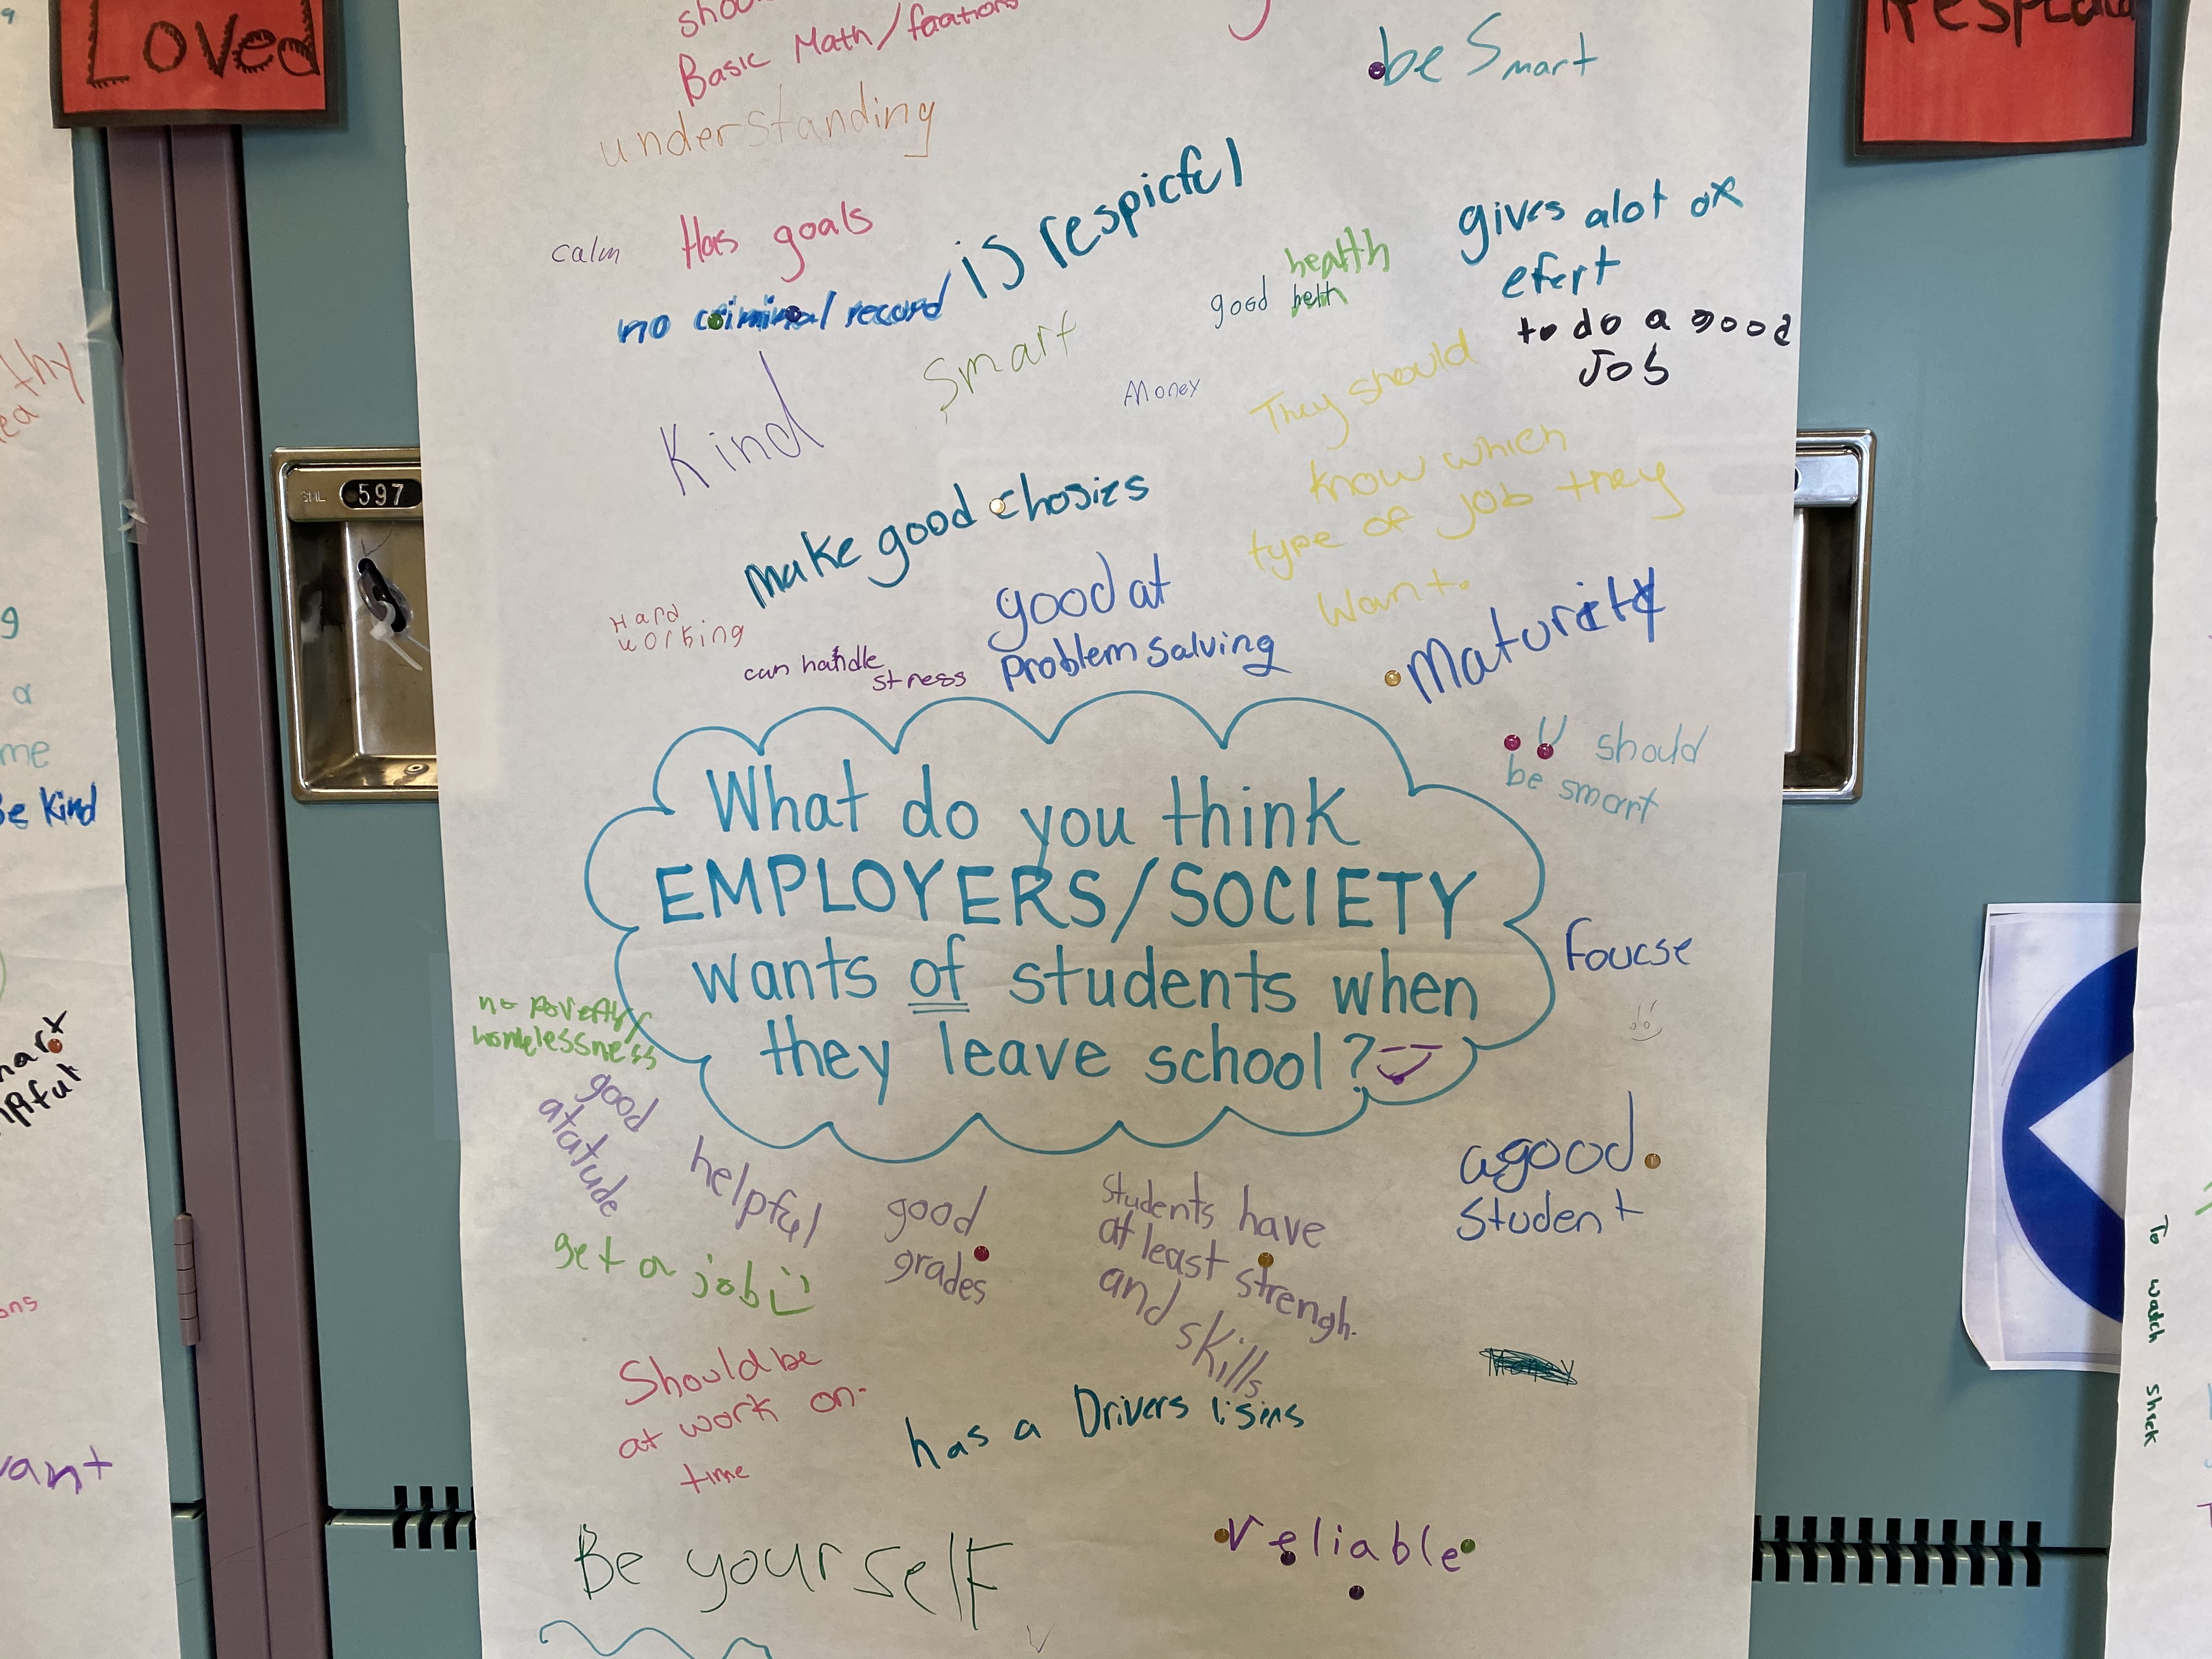 Loved
Basic Math/
understanding
be Smart
calm
Has goals
is respicful
no criminal record
good helth
health
gives alot of
efert
to do a good
Job
Kind
Smart
Money
They should
know which
type of job they
want.
make good chosies
Hard
working
can handle
stress
good at
problem salving
Maturity
U should
be smart
597
What do you think
EMPLOYERS/SOCIETY
wants of students when
they leave school?
Foucse
no poverty/
homelessness
good
atatude
helpful
get a job
good
grades
students have
at least strengh.
and skills
a good
Student
Money
Should be
at work on-
time
has a Drivers lisins
Be yourself
reliable
Be Kind
me
a
want
To watch Shrek